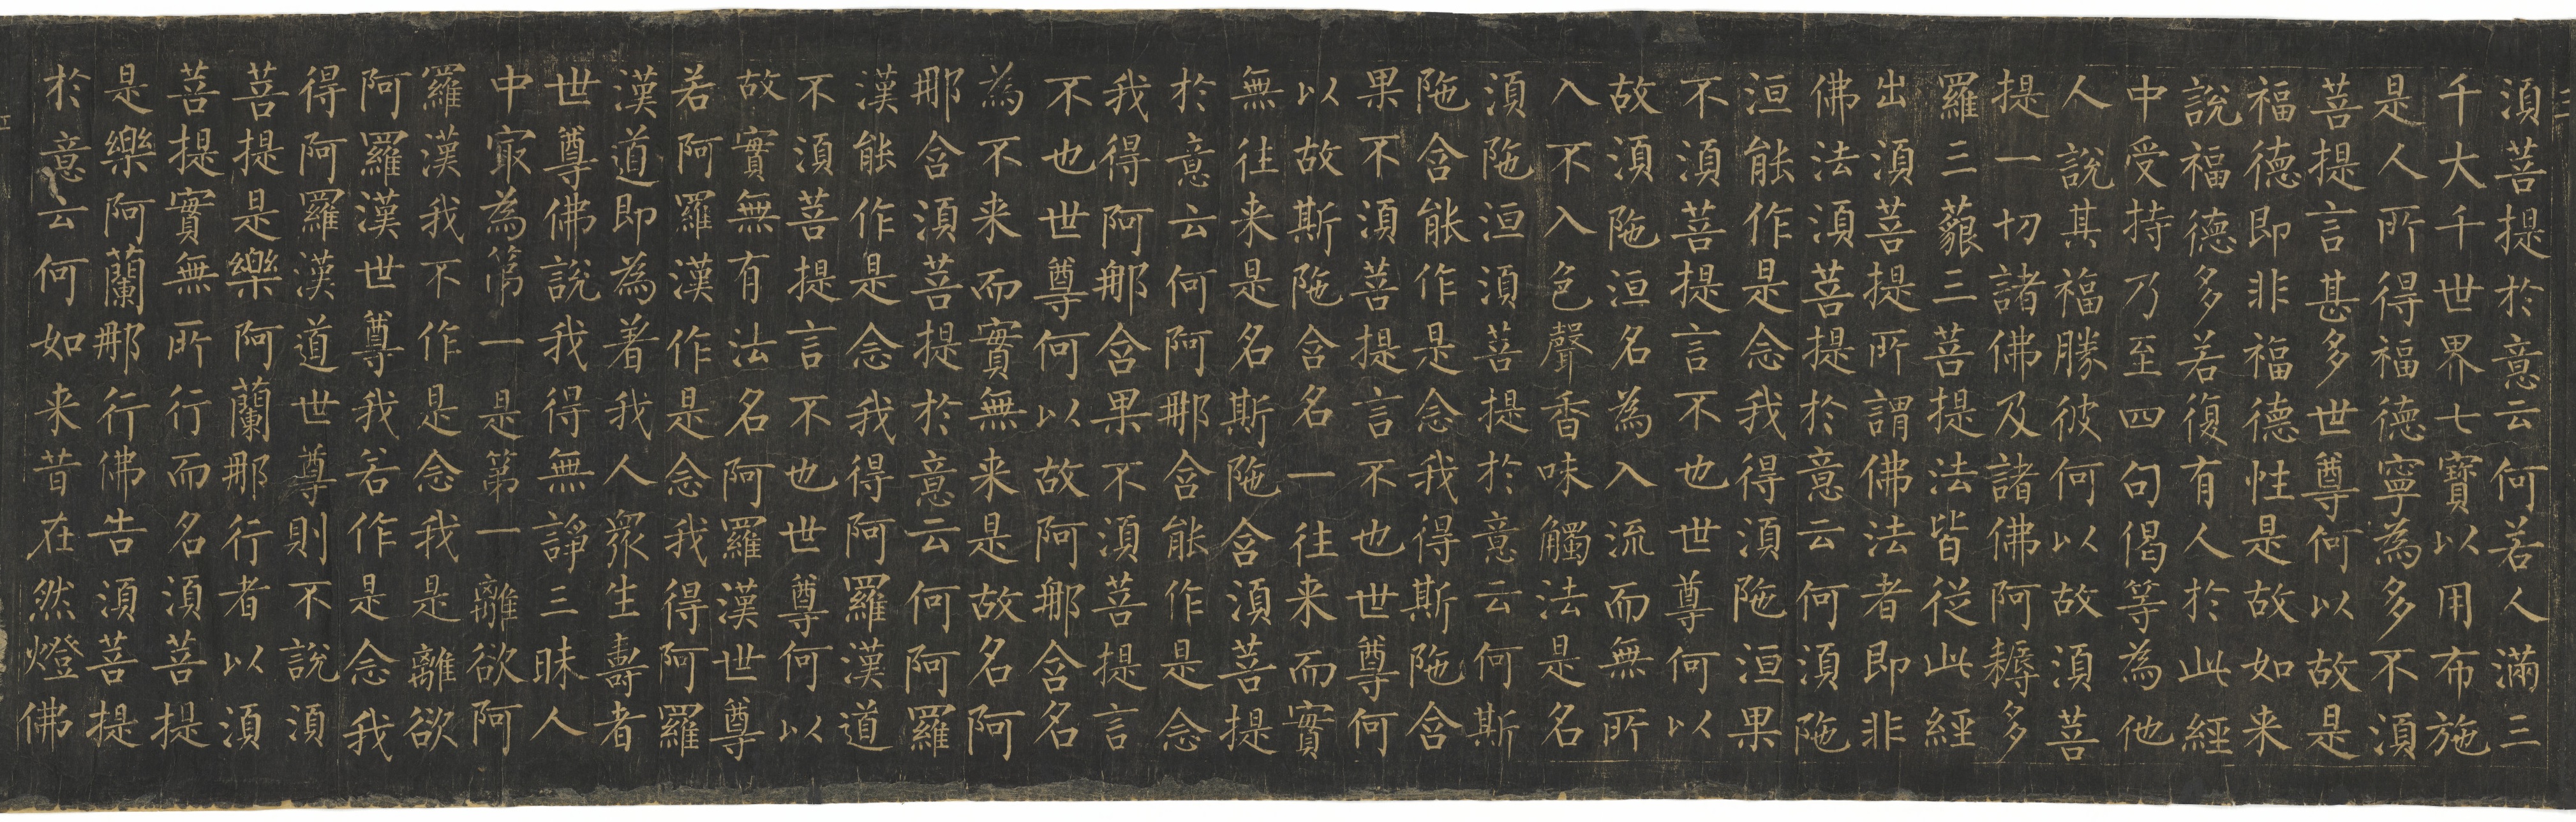 二
須菩提於意云何若人滿三
千大千世界七寶以用布施
是人所得福德寧為多不須
菩提言甚多世尊何以故是
福德即非福德性是故如来
說福德多若復有人於此經
中受持乃至四句偈等為他
人說其福勝彼何以故須菩
提一切諸佛及諸佛阿耨多
羅三藐三菩提法皆從此經
出須菩提所謂佛法者即非
佛法須菩提於意云何須陁
洹能作是念我得須陁洹果
不須菩提言不也世尊何以
故須陁洹名為入流而無所
入不入色聲香味觸法是名
須陁洹須菩提於意云何斯
陁含能作是念我得斯陁含
果不須菩提言不也世尊何
以故斯陁含名一往来而實
無往来是名斯陁含須菩提
於意云何阿那含能作是念
我得阿那含果不須菩提言
不也世尊何以故阿那含名
為不来而實無来是故名阿
那含須菩提於意云何阿羅
漢能作是念我得阿羅漢道
不須菩提言不也世尊何以
故實無有法名阿羅漢世尊
若阿羅漢作是念我得阿羅
漢道即為着我人眾生壽者
世尊佛說我得無諍三昧人
中冣為第一是第一離欲阿
羅漢我不作是念我是離欲
阿羅漢世尊我若作是念我
得阿羅漢道世尊則不說須
菩提是樂阿蘭那行者以須
菩提實無所行而名須菩提
是樂阿蘭那行佛告須菩提
於意云何如来昔在然燈佛